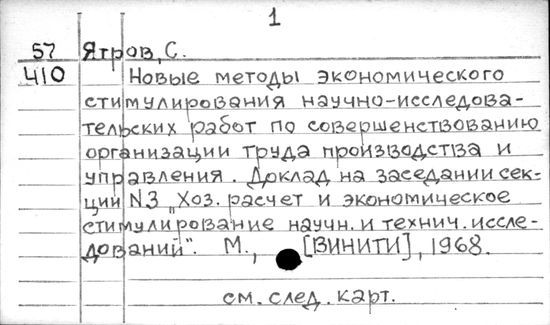 1
57 Ятров, С.
410 Новые методы экономического
стимулирования научно-исследова-
тельских работ по совершенствованию
организации труда производства и
управления. Доклад на заседании сек-
ции N3 „Хоз. расчет и экономическое
стимулирование научн. и технич. иссле-
дований". М., [ВИНИТИ], 1968.
см. след. карт.